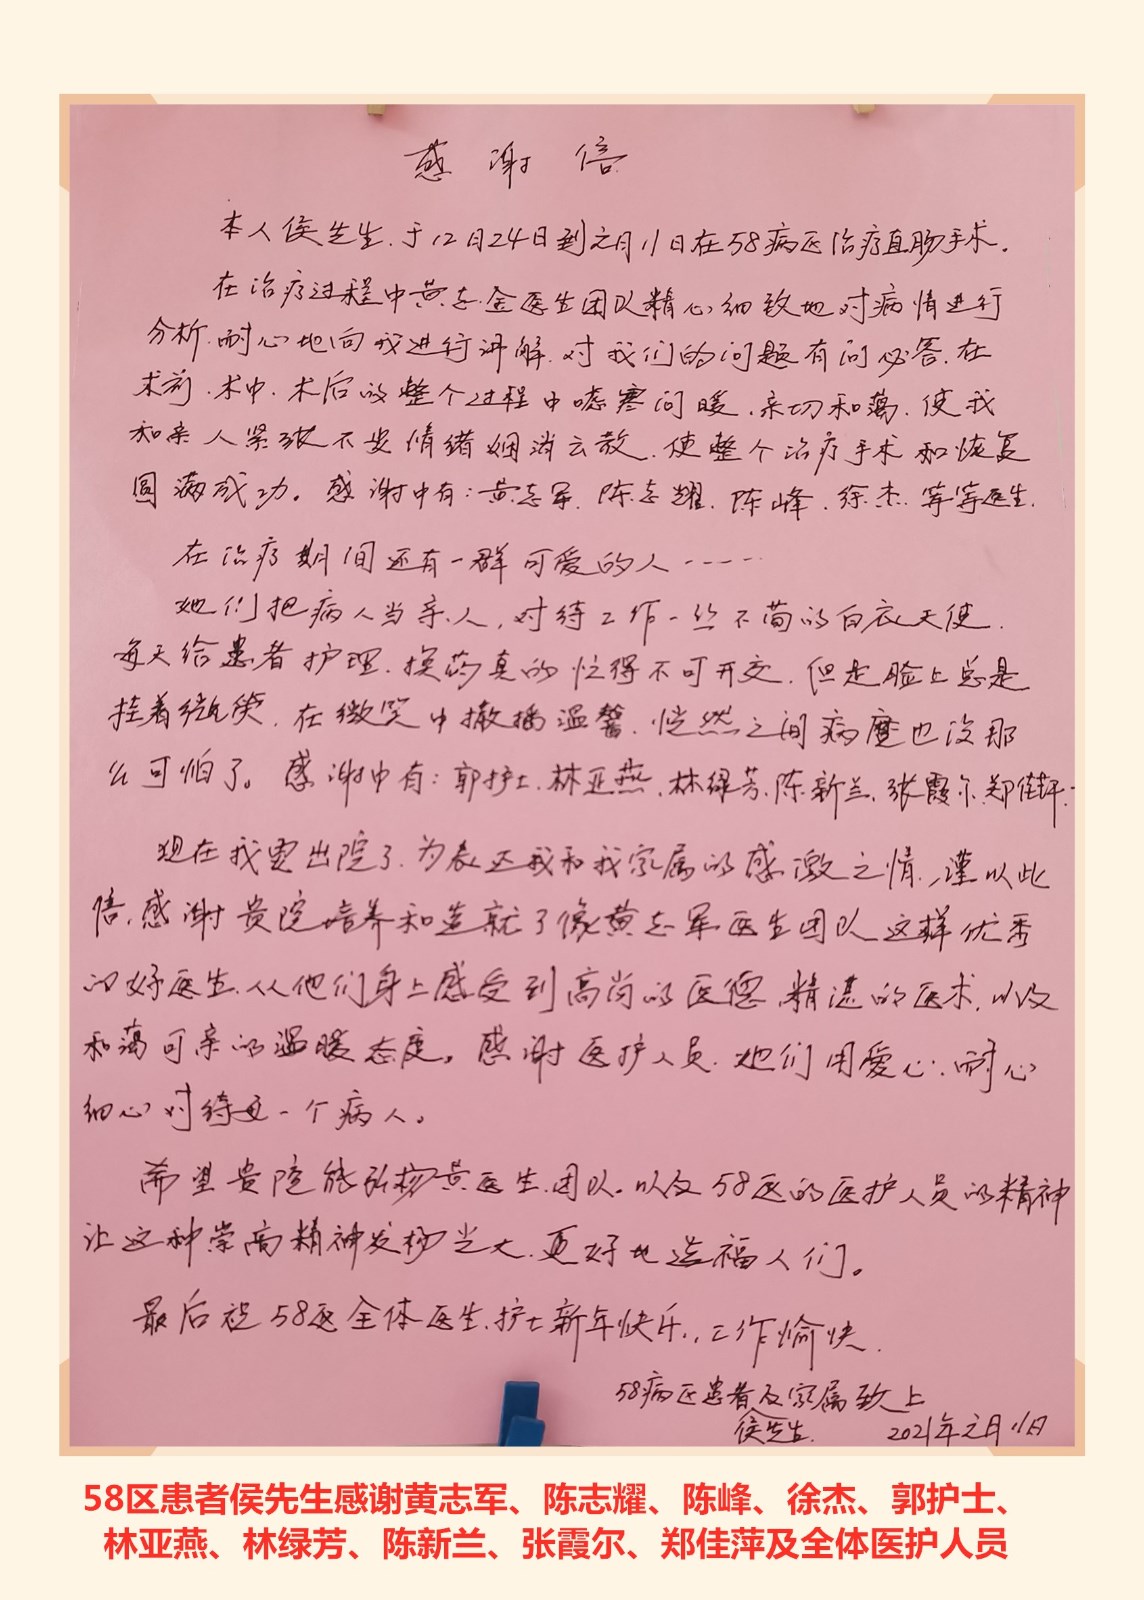 感谢信
本人侯先生.于12月24日到元月11日在58病区治疗直肠手术.
在治疗过程中黄志金医生团队精心细致地对病情进行
分析.耐心地向我进行讲解.对我们的问题有问必答.在
术前.术中.术后的整个过程中嘘寒问暖.亲切和蔼.使我
和亲人紧张不安情绪烟消云散.使整个治疗手术和恢复
圆满成功。感谢中有:黄志军.陈志耀.陈峰.徐杰.等等医生.
在治疗期间还有一群可爱的人……
她们把病人当亲人,对待工作一丝不苟的白衣天使.
每天给患者护理.换药真的忙得不可开交.但是脸上总是
挂着微笑.在微笑中撒播温馨.恍然之间病魔也没那
么可怕了。感谢中有:郭护士.林亚燕.林绿芳.陈新兰.张霞尔.郑佳萍.
现在我要出院了.为表达我和我家属的感激之情,谨以此
信.感谢贵院培养和造就了像黄志军医生团队这样优秀
的好医生.从他们身上感受到高尚的医德.精湛的医术.以及
和蔼可亲的温暖态度。感谢医护人员.她们用爱心.耐心
细心对待每一个病人。
希望贵院能弘扬黄医生.团队.以及58区的医护人员的精神
让这种崇高精神发扬光大.更好地造福人们。
最后祝58区全体医生.护士新年快乐.,工作愉快.
58病区患者及家属致上
侯先生. 2021年元月11日
58区患者侯先生感谢黄志军、陈志耀、陈峰、徐杰、郭护士、
林亚燕、林绿芳、陈新兰、张霞尔、郑佳萍及全体医护人员